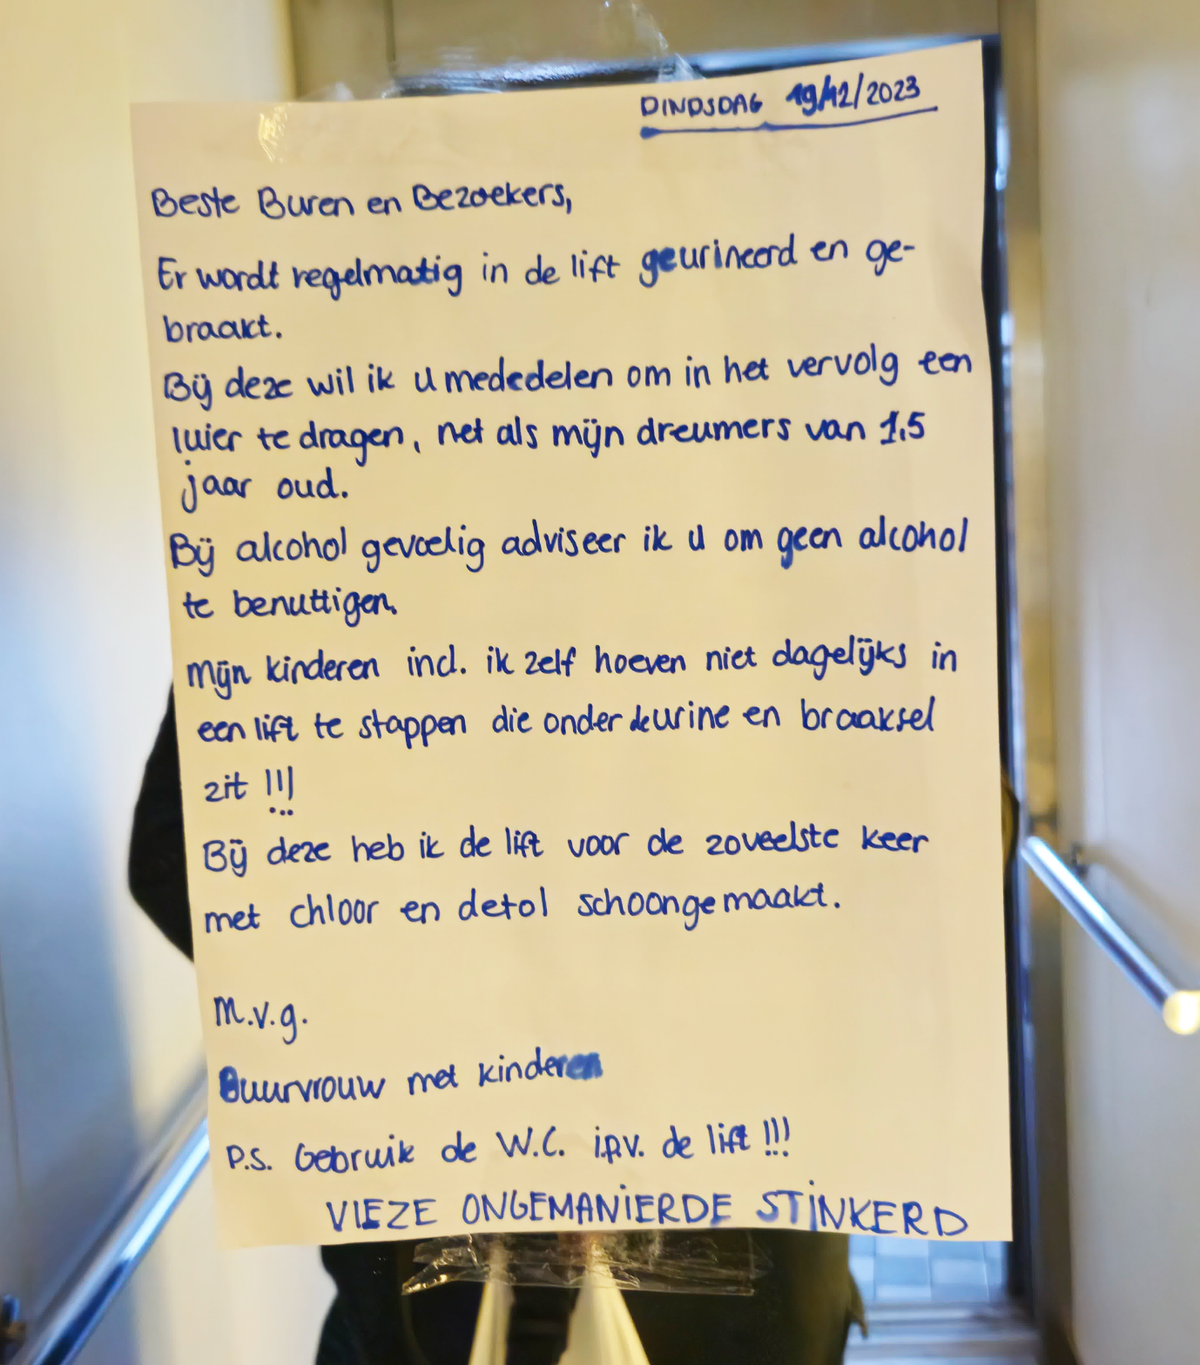 DINDSDAG 19/12/2023
Beste Buren en Bezoekers,
Er wordt regelmatig in de lift geurineerd en ge-
braakt.
Bij deze wil ik u mededelen om in het vervolg een
luier te dragen, net als mijn dreumers van 1,5
jaar oud.
Bij alcohol gevoelig adviseer ik u om geen alcohol
te benuttigen.
Mijn kinderen incl. ik zelf hoeven niet dagelijks in
een lift te stappen die onder de urine en braaksel
zit !!!
Bij deze heb ik de lift voor de zoveelste keer
met chloor en detol schoongemaakt.
M.v.g.
Buurvrouw met kinderen
P.S. Gebruik de W.C. i.p.v. de lift !!!
VIEZE ONGEMANIERDE STINKERD